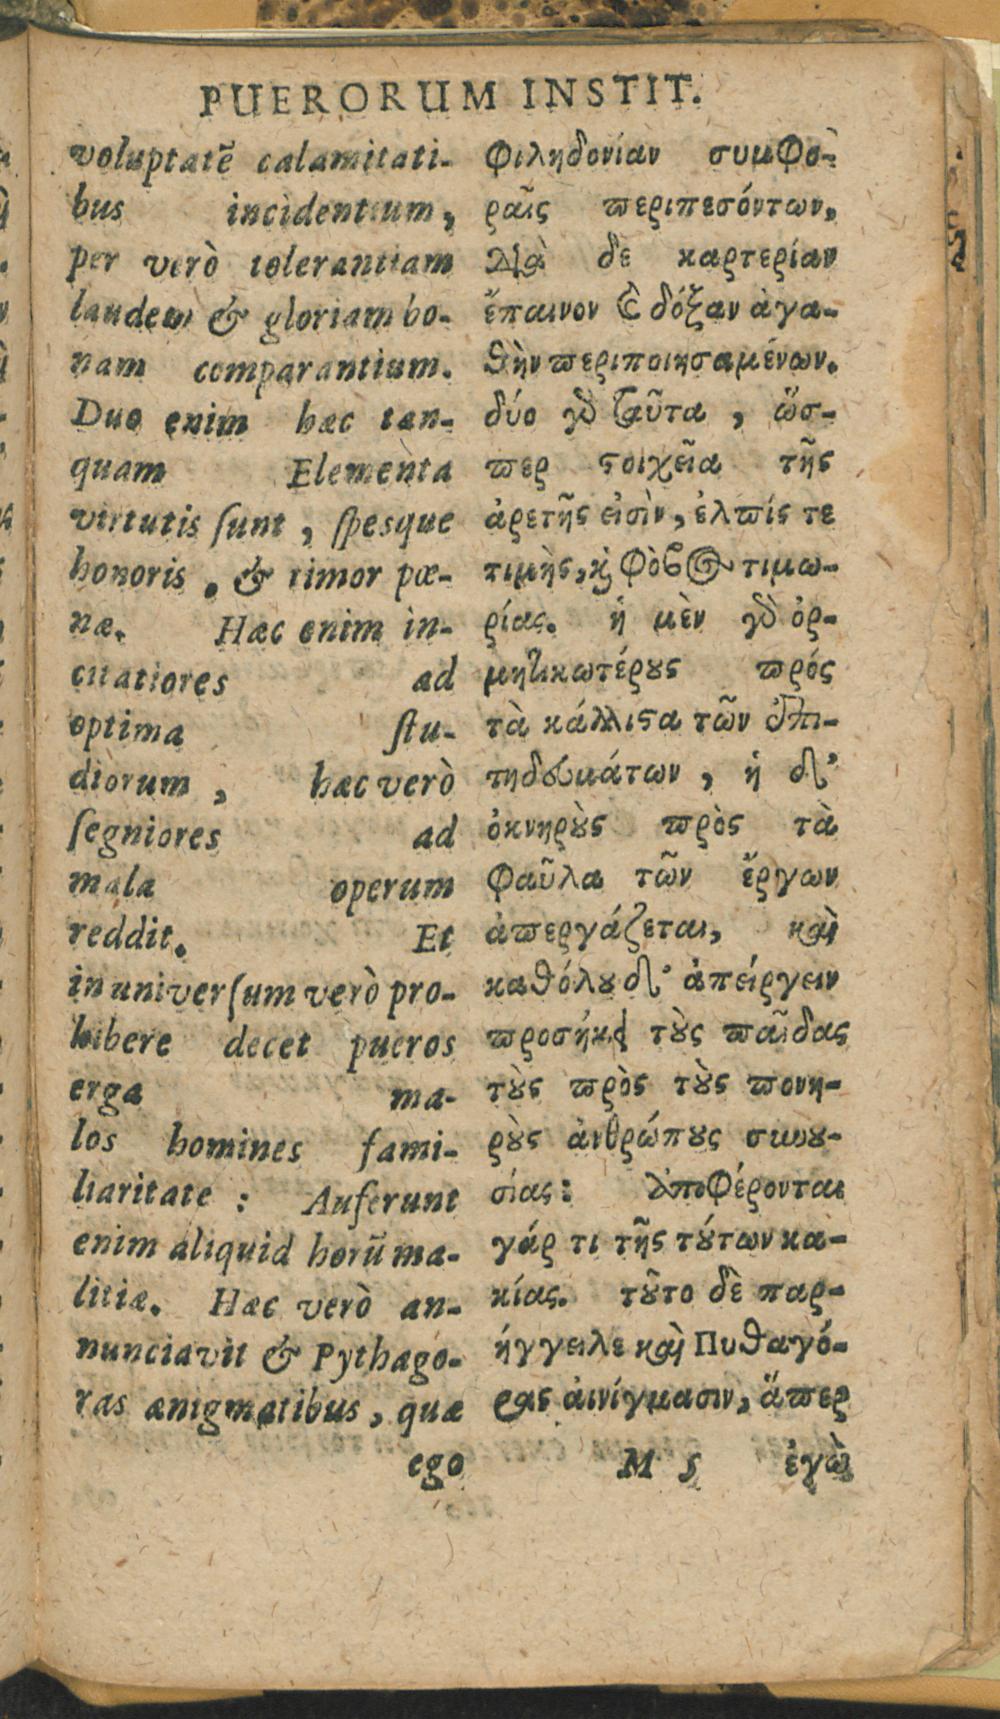 PUERORUM INSTIT.
voluptatē calamitati-
bus incidentium,
per verò tolerantiam
laudem & gloriam bo-
nam comparantium.
Duo enim hæc tan-
quam Elementa
virtutis ſunt, ſpesque
honoris, & timor pœ-
næ. Hæc enim in-
citatiores ad
optima ſtu-
diorum, hæc verò
ſegniores ad
mala operum
reddit. Et
in univerſum verò pro-
hibere decet pueros
erga ma-
los homines fami-
liaritate: Auferunt
enim aliquid horū ma-
litiæ. Hæc verò an-
nunciavit & Pythago-
ras ænigmatibus, quæ
ego
φιληδονίαν συμφο-
ραῖς περιπεσόντων,
διὰ δὲ καρτερίαν
ἔπαινον καὶ δόξαν ἀγα-
θὴν περιποιησαμένων.
δύο γὸ ταῦτα, ὥσ-
περ ϛοιχεῖα τῆς
ἀρετῆς εἰσὶν, ἐλπίς τε
τιμῆς, καὶ φόβος τιμω-
ρίας. ἡ μὲν γὸ ὁρ-
μητικωτέρȣς πρός
τὰ κάλλιϛα τῶν ἐπι-
τηδευμάτων, ἡ δ'
ὀκνηρȣ̀ς πρὸς τὰ
φαῦλα τῶν ἔργων
ἀπεργάζεται, καὶ
καθόλȣ δ' ἀπείργειν
προσήκει τȣ̀ς παῖδας
τȣ̀ς πρὸς τȣ̀ς πονη-
ρȣ̀ς ἀνθρώπȣς συνου-
σίας: ἀποφέρονται
γάρ τι τῆς τȣ́των κα-
κίας. τȣ̃το δὲ παρ-
ήγγειλε καὶ Πυθαγό-
ρας αἰνίγμασιν, ἅπερ
M 5 ἐγὼ